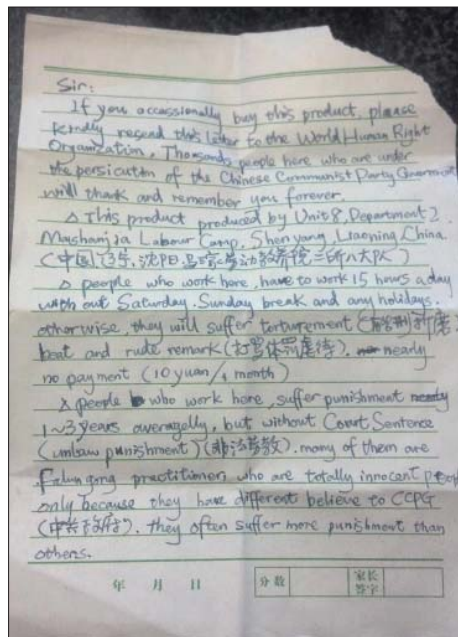 Sir:
If you occassionally buy this product, please
kindly resend this letter to the World Human Right
Organization. Thousands people here who are under
the persicution of the Chinese Communist Party Government
will thank and remember you forever.
△ This product produced by Unit 8, Department 2,
Mashanjia Labour Camp, Shenyang, Liaoning, China.
(中国, 辽宁, 沈阳, 马三家劳动教养院二所八大队)
△ people who work here, have to work 15 hours a day
with out Saturday, Sunday break and any holidays,
otherwise, they will suffer torturement 折磨
beat and rude remark (打骂体罚虐待). nearly
no payment (10 yuan/1 month)
△ people who work here, suffer punishment
1~3 years averagelly, but without Court Sentence
(unlaw punishment) (非法劳教). many of them are
Falun gong practitioner, who are totally innocent people
only because they have different believe to CCPG
(中共政府). they often suffer more punishment than
others.
年 月 日 分数 家长签字